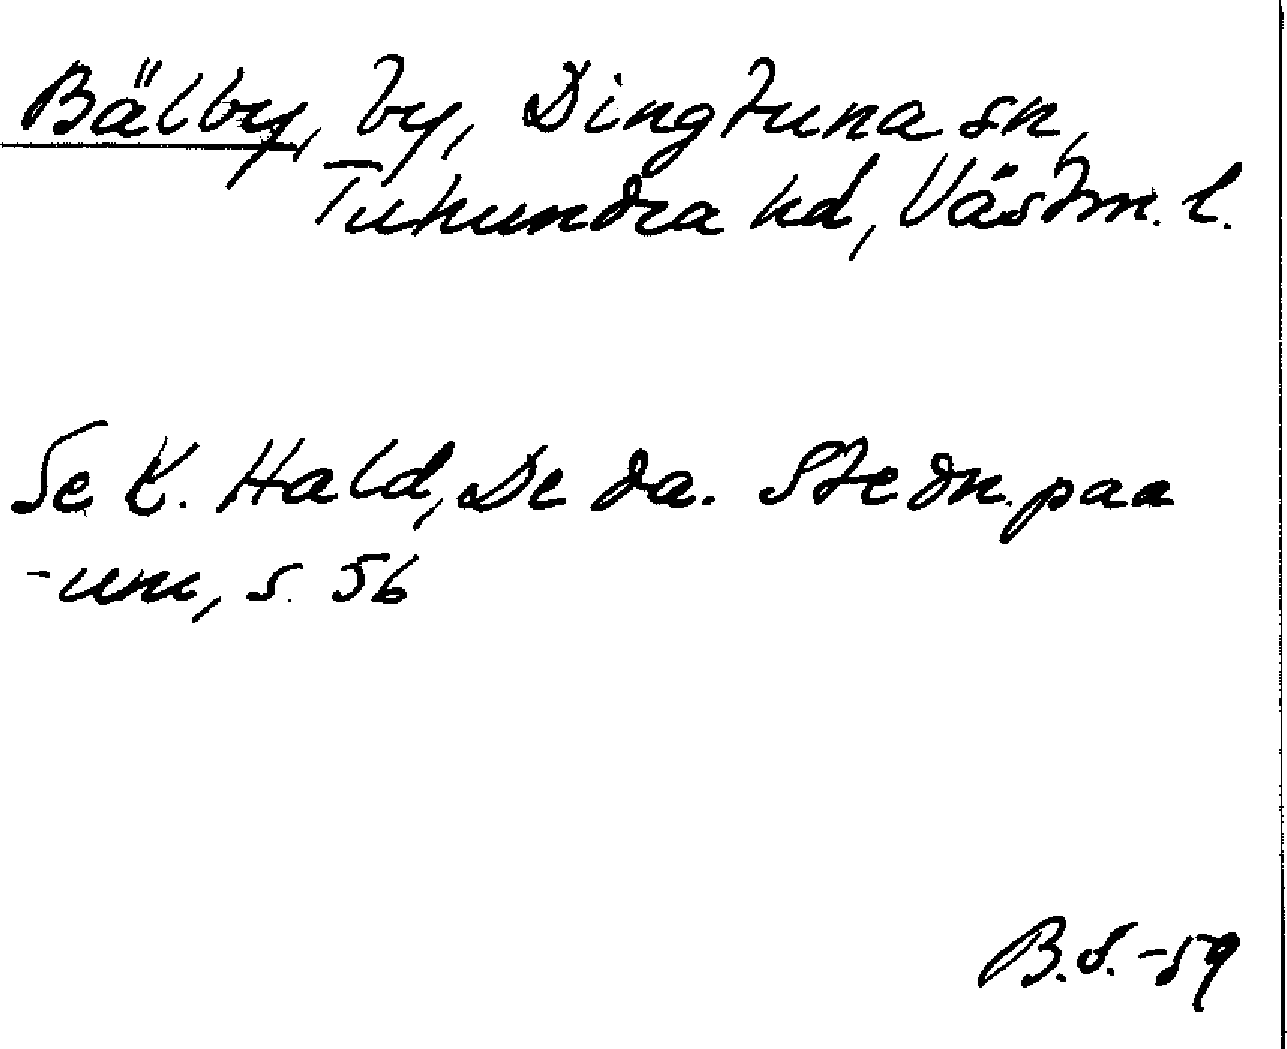 Bälby, by, Dingtuna sn,
Tuhundra hd, Västm. l.
Se K. Hald, De da. Stedn. paa
-um, s. 56
B.S. -59